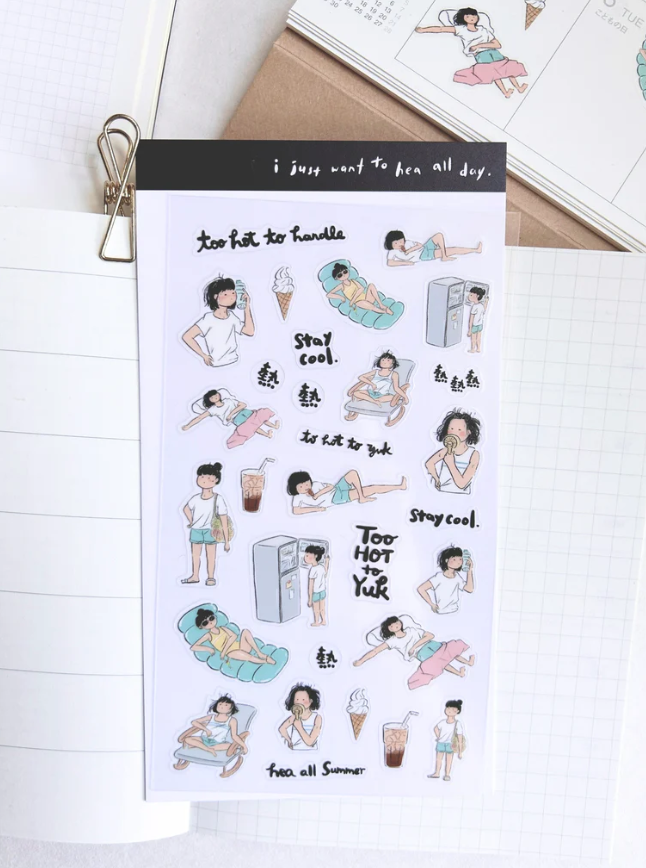 TUE
こどもの日
i just want to hea all day.
too hot to handle
stay
cool.
熱
熱
熱 熱 熱
to hot to yuk
stay cool.
Too
HOT
to
Yuk
熱
hea all Summer